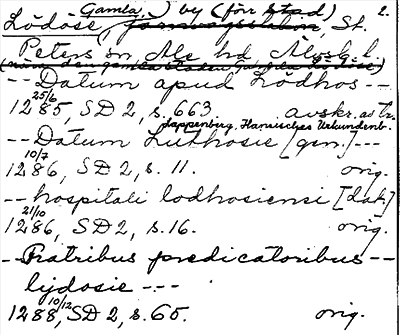 Gamla, ) by (för stad) 2.
Lödöse, St.
Peters sn Ale hd Älvsb. l.
-- Datum apud Lödhos --
25/6
1285, SD 2, s. 663 avskr. av Tr.
Lappenberg, Hansisches Urkundenb.
-- Datum Luthosie [gen.] ---
10/7
1286, SD 2, s. 11. orig.
-- hospitali lodhosiensi [dat.]
21/10
1286, SD 2, s. 16. orig.
-- Fratribus predicatoribus --
lydosie ---
10/12
1288, SD 2, s. 65. orig.